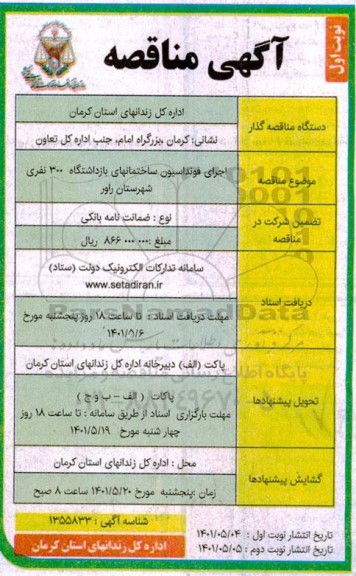 نوبت اول
آگهی مناقصه
دستگاه مناقصه گذار
اداره کل زندانهای استان کرمان
نشانی: کرمان ،بزرگراه امام، جنب اداره کل تعاون
موضوع مناقصه
اجرای فونداسیون ساختمانهای بازداشتگاه ۳۰۰ نفری
شهرستان راور
تضمین شرکت در
مناقصه
نوع : ضمانت نامه بانکی
مبلغ :۸۶۶ ۰۰۰ ۰۰۰ ریال
دریافت اسناد
سامانه تدارکات الکترونیک دولت (ستاد)
www.setadiran.ir
مهلت دریافت اسناد : تا ساعت ۱۸ روز پنجشنبه مورخ
۱۴۰۱/۵/۶
تحویل پیشنهادها
پاکت (الف) دبیرخانه اداره کل زندانهای استان کرمان
پاکات ( الف – ب و ج )
مهلت بارگزاری اسناد از طریق سامانه : تا ساعت ۱۸ روز
چهار شنبه مورخ ۱۴۰۱/۵/۱۹
گشایش پیشنهادها
محل : اداره کل زندانهای استان کرمان
زمان :پنجشنبه مورخ ۱۴۰۱/۵/۲۰ ساعت ۸ صبح
تاریخ انتشار نوبت اول : ۱۴۰۱/۰۵/۰۴
تاریخ انتشار نوبت دوم : ۱۴۰۱/۰۵/۰۵
شناسه آگهی : ۱۳۵۵۸۳۳
اداره کل زندانهای استان کرمان